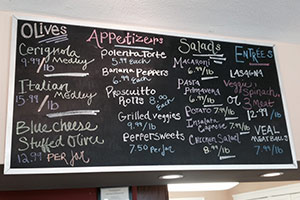 OLIVES
Cerignola
9.99/lb Medley
Italian
15.99/lb Medley
Blue cheese
Stuffed olive
12.99 Per Jar
APPetizers
Polenta Torte
5.99 Each
Banana Peppers
6.99 Each
Prosciutto
Rolls 8.00 Each
Grilled veggies
9.99/lb
Peppersweets
7.50 Per Jar
Salads
Macaroni
6.99/lb
Pasta
Primavera
6.99/lb
Potato
Insalata
Caprese 7.99/lb
Chicken Salad
8.99/lb
ENTREÉS
LASAGNA
Veggie
Spinach
or 3 Meat
12.99/lb
VEAL
MEATBALLS
7.99/lb